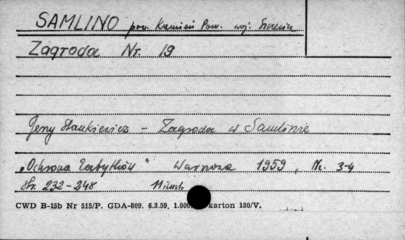 SAMLINO pow. Kamień Pom. woj. Szczecin
Zagroda Nr. 19
Jerzy Stankiewicz – Zagroda w Samlinie
"Ochrona Zabytków" Warszawa 1959, Nr. 3-4
Str. 232-248
CWD B-15b Nr 515/P. GDA-809. 6.3.59, 1.000 karton 180/V.